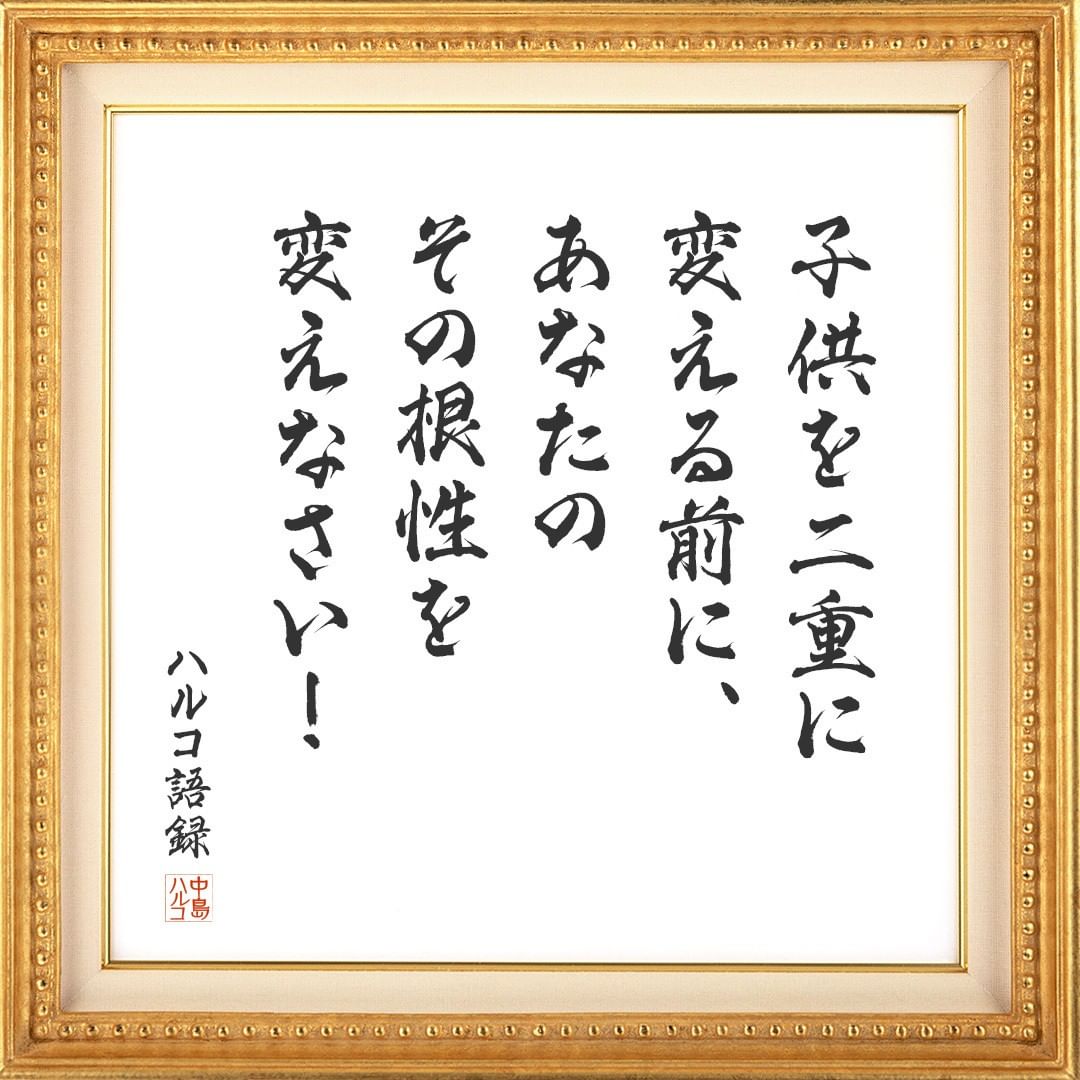 子供を二重に
変える前に、
あなたの
その根性を
変えなさい!
ハルコ語録
中島
ハルコ